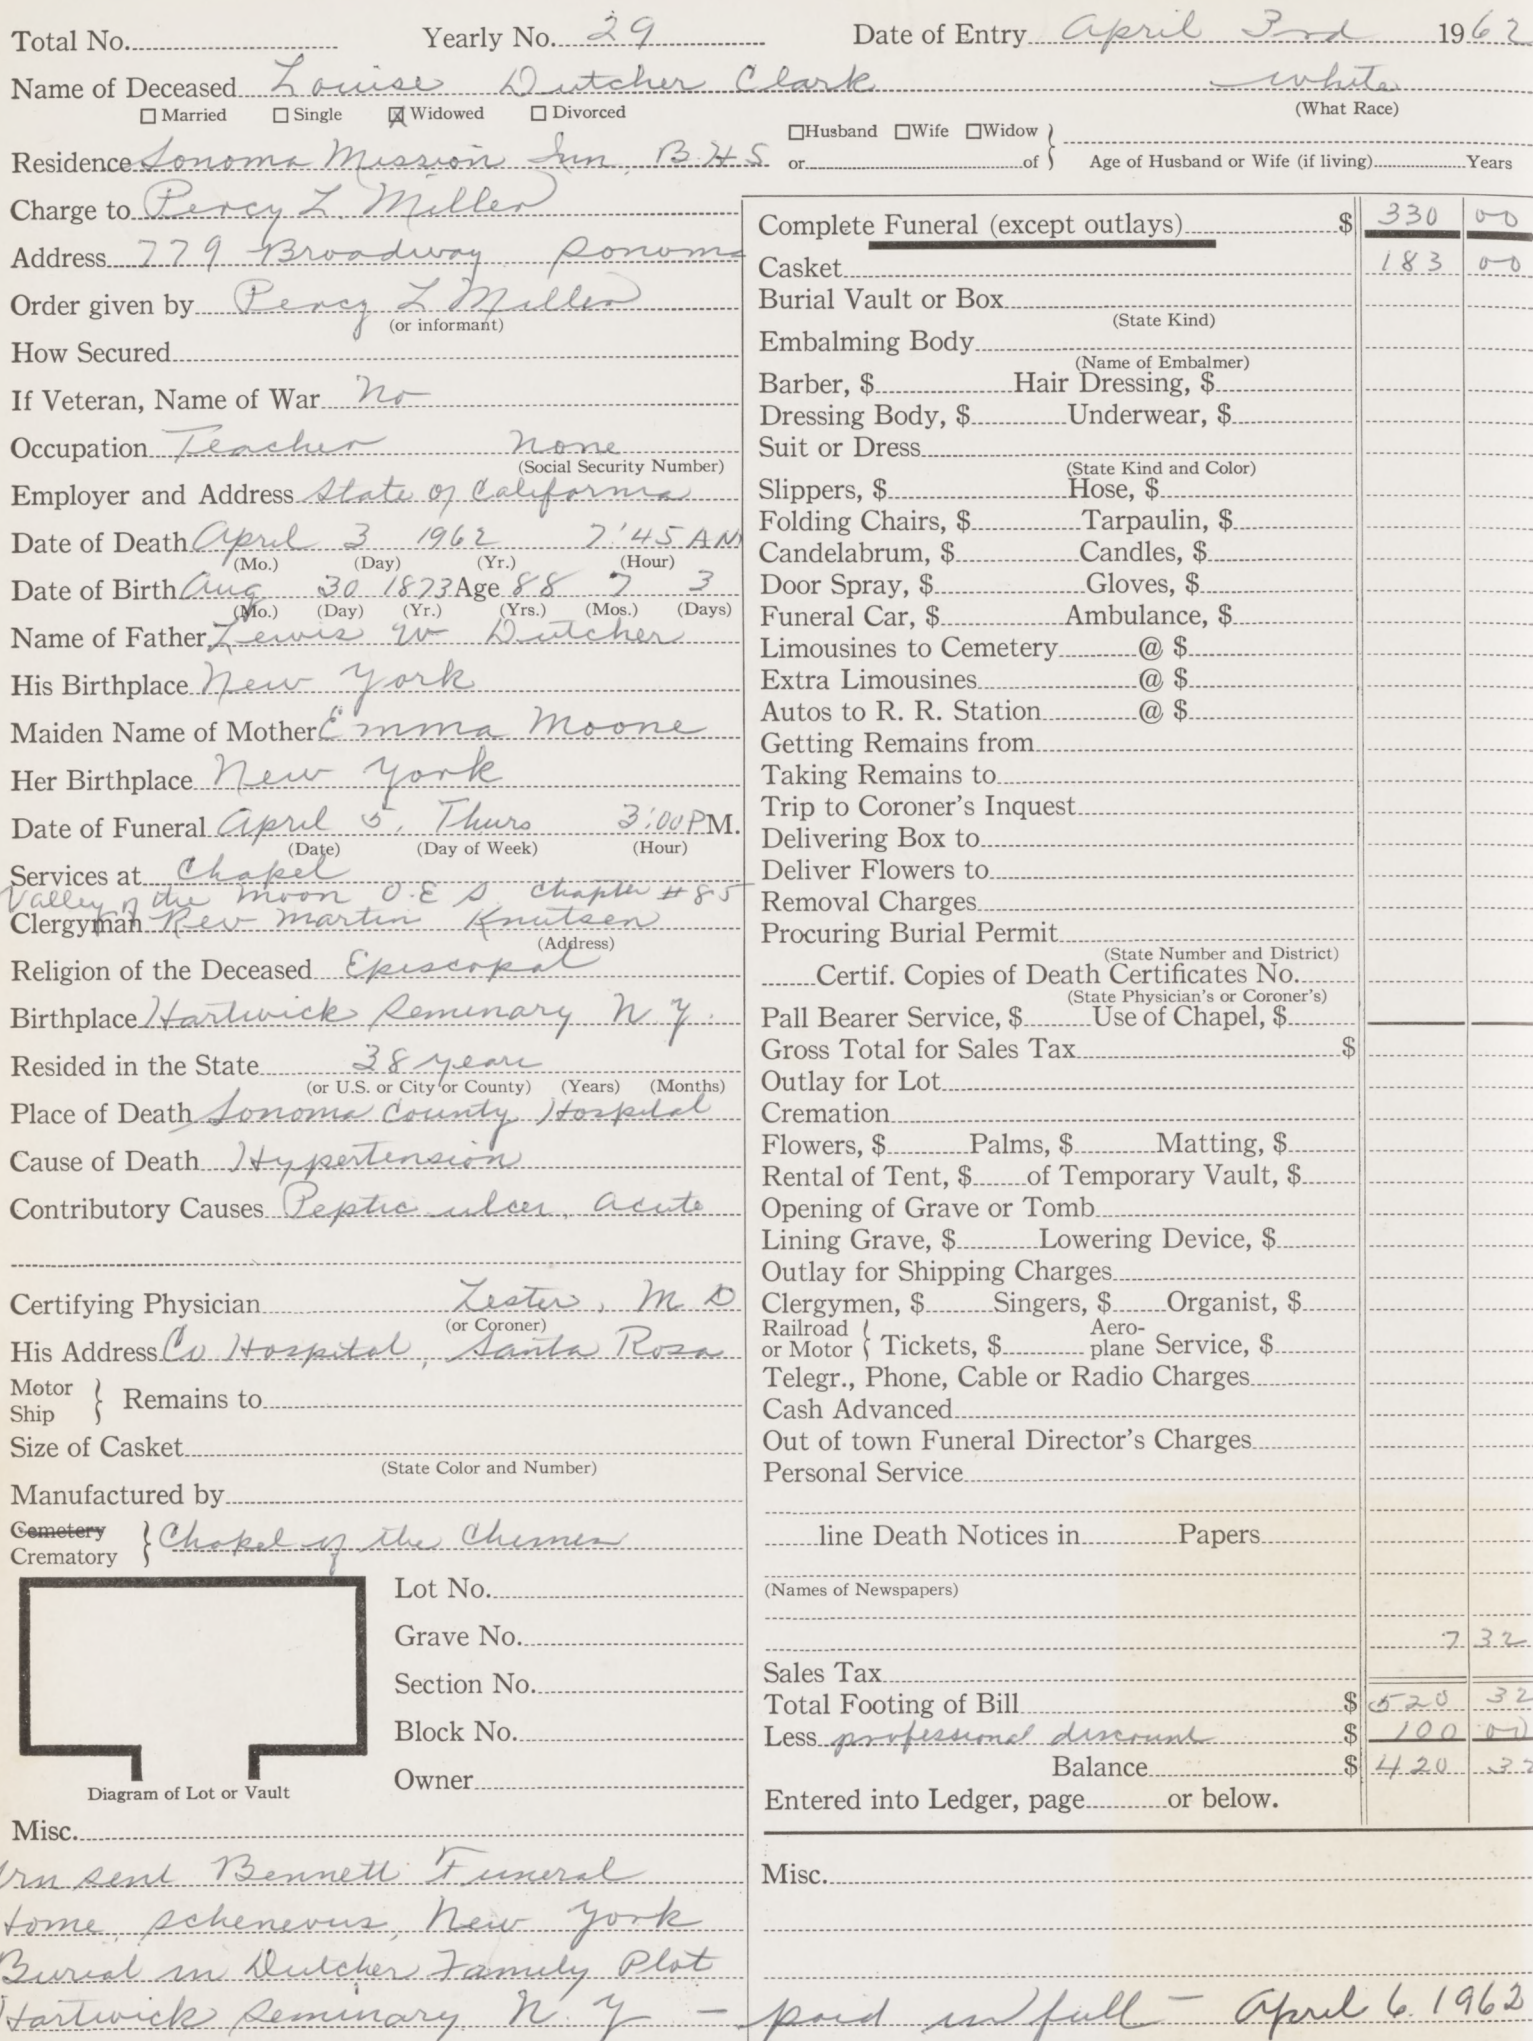 Total No. Yearly No. 29 Date of Entry April 3rd 1962
Name of Deceased Louise Dutcher Clark white
(What Race)
☐ Married ☐ Single ☒ Widowed ☐ Divorced
☐Husband ☐Wife ☐Widow
Residence Sonoma Mission Inn, B.H.S. or of Age of Husband or Wife (if living) Years
Charge to Percy L. Miller
Address 779 Broadway Sonoma
Order given by Percy L Miller
(or informant)
How Secured
If Veteran, Name of War No
Occupation Teacher none
(Social Security Number)
Employer and Address State of California
Date of Death April 3 1962 7:45 AM
(Mo.) (Day) (Yr.) (Hour)
Date of Birth Aug 30 1873 Age 88 7 3
(Mo.) (Day) (Yr.) (Yrs.) (Mos.) (Days)
Name of Father Lewis W Dutcher
His Birthplace New York
Maiden Name of Mother Emma Moone
Her Birthplace New York
Date of Funeral April 5, Thurs 3:00 P M.
(Date) (Day of Week) (Hour)
Services at Chapel
Valley of the Moon O.E.S. Chapter #85
Clergyman Rev Martin Knutsen
(Address)
Religion of the Deceased Episcopal
Birthplace Hartwick Seminary N.Y.
Resided in the State 38 years
(or U.S. or City or County) (Years) (Months)
Place of Death Sonoma County Hospital
Cause of Death Hypertension
Contributory Causes Peptic ulcer, acute
Certifying Physician Lester, M D
(or Coroner)
His Address Co Hospital, Santa Rosa
Motor
Ship } Remains to
Size of Casket
(State Color and Number)
Manufactured by
Cemetery
Crematory } Chapel of the Chimes
Lot No.
Grave No.
Section No.
Block No.
Owner
Diagram of Lot or Vault
Misc.
Urn sent Bennett Funeral
Home, Schenevus, New York
Burial in Dutcher Family Plot
Hartwick Seminary N.Y. – paid in full – April 6. 1962
Complete Funeral (except outlays) $ 330 00
Casket 183 00
Burial Vault or Box
(State Kind)
Embalming Body
(Name of Embalmer)
Barber, $ Hair Dressing, $
Dressing Body, $ Underwear, $
Suit or Dress
(State Kind and Color)
Slippers, $ Hose, $
Folding Chairs, $ Tarpaulin, $
Candelabrum, $ Candles, $
Door Spray, $ Gloves, $
Funeral Car, $ Ambulance, $
Limousines to Cemetery @ $
Extra Limousines @ $
Autos to R. R. Station @ $
Getting Remains from
Taking Remains to
Trip to Coroner's Inquest
Delivering Box to
Deliver Flowers to
Removal Charges
Procuring Burial Permit
(State Number and District)
Certif. Copies of Death Certificates No.
(State Physician's or Coroner's)
Pall Bearer Service, $ Use of Chapel, $
Gross Total for Sales Tax $
Outlay for Lot
Cremation
Flowers, $ Palms, $ Matting, $
Rental of Tent, $ of Temporary Vault, $
Opening of Grave or Tomb
Lining Grave, $ Lowering Device, $
Outlay for Shipping Charges
Clergymen, $ Singers, $ Organist, $
Railroad
or Motor } Tickets, $ Aero-
plane Service, $
Telegr., Phone, Cable or Radio Charges
Cash Advanced
Out of town Funeral Director's Charges
Personal Service
line Death Notices in Papers
(Names of Newspapers)
7 32
Sales Tax
Total Footing of Bill $ 520 32
Less professional discount $ 100 00
Balance $ 420 32
Entered into Ledger, page or below.
Misc.